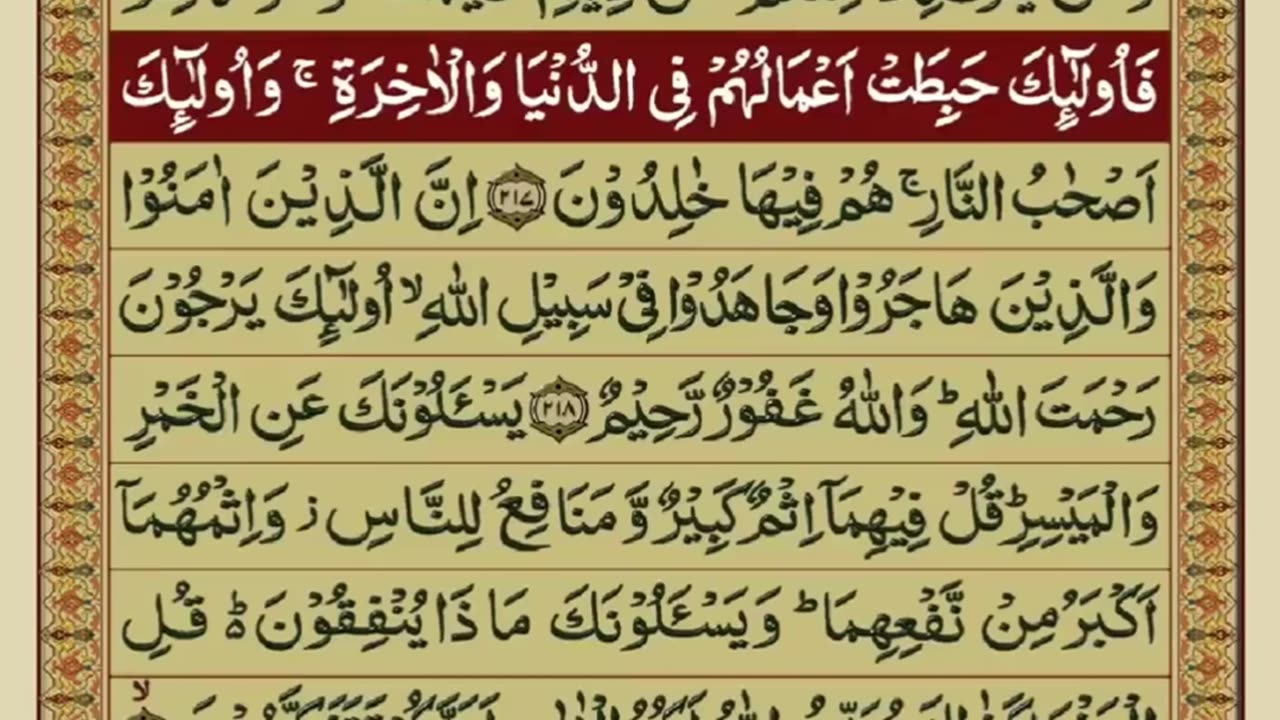 فَاُولٰٓئِكَ حَبِطَتْ اَعْمَالُهُمْ فِی الدُّنْیَا وَالْاٰخِرَةِ ۚ وَاُولٰٓئِكَ
اَصْحٰبُ النَّارِ ۚ هُمْ فِیْهَا خٰلِدُوْنَ ﴿۲۱۷﴾ اِنَّ الَّذِیْنَ اٰمَنُوْا
وَالَّذِیْنَ هَاجَرُوْا وَجَاهَدُوْا فِیْ سَبِیْلِ اللّٰهِ ۙ اُولٰٓئِكَ یَرْجُوْنَ
رَحْمَتَ اللّٰهِ ؕ وَاللّٰهُ غَفُوْرٌ رَّحِیْمٌ ﴿۲۱۸﴾ یَسْـَٔلُوْنَكَ عَنِ الْخَمْرِ
وَالْمَیْسِرِ ؕ قُلْ فِیْهِمَاۤ اِثْمٌ كَبِیْرٌ وَّمَنَافِعُ لِلنَّاسِ ؗ وَاِثْمُهُمَاۤ
اَكْبَرُ مِنْ نَّفْعِهِمَا ؕ وَیَسْـَٔلُوْنَكَ مَاذَا یُنْفِقُوْنَ ؕ۬ قُلِ